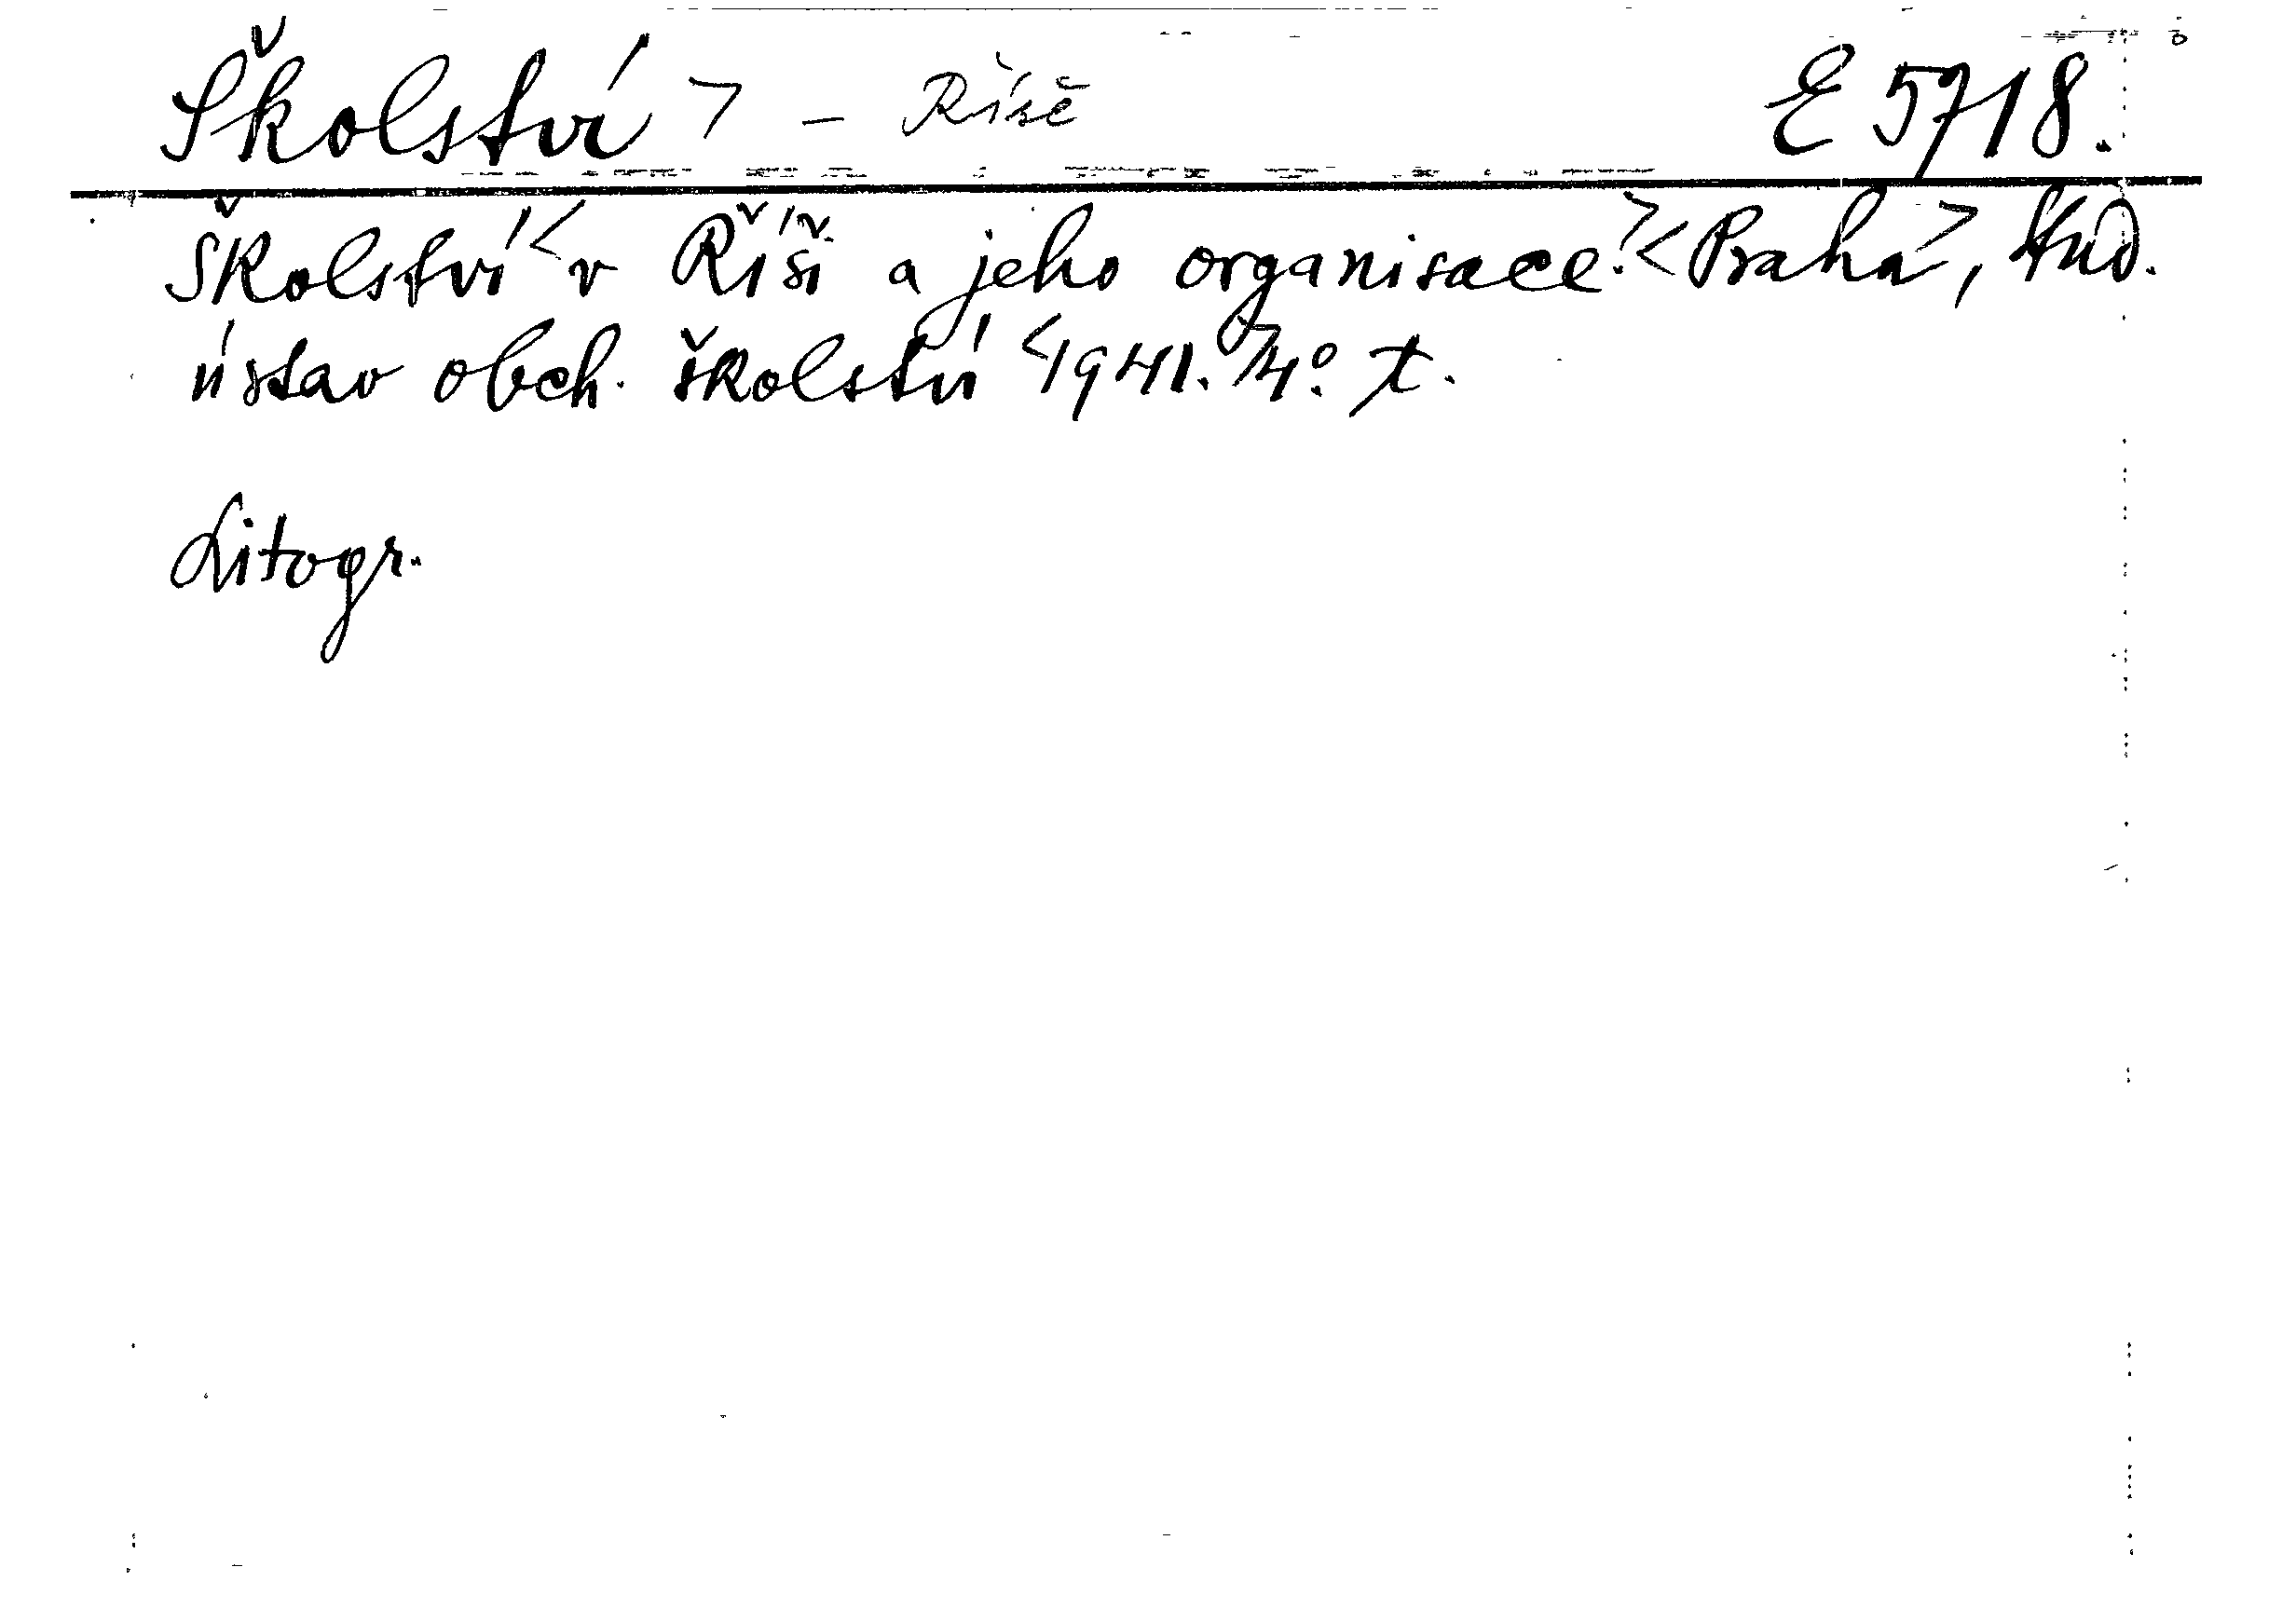 Školství > - Říše E 5718.
Školství < v Říši a jeho organisace. > < Praha >, Stud.
ústav obch. školství < 1941. > 4°. t.
Litogr.